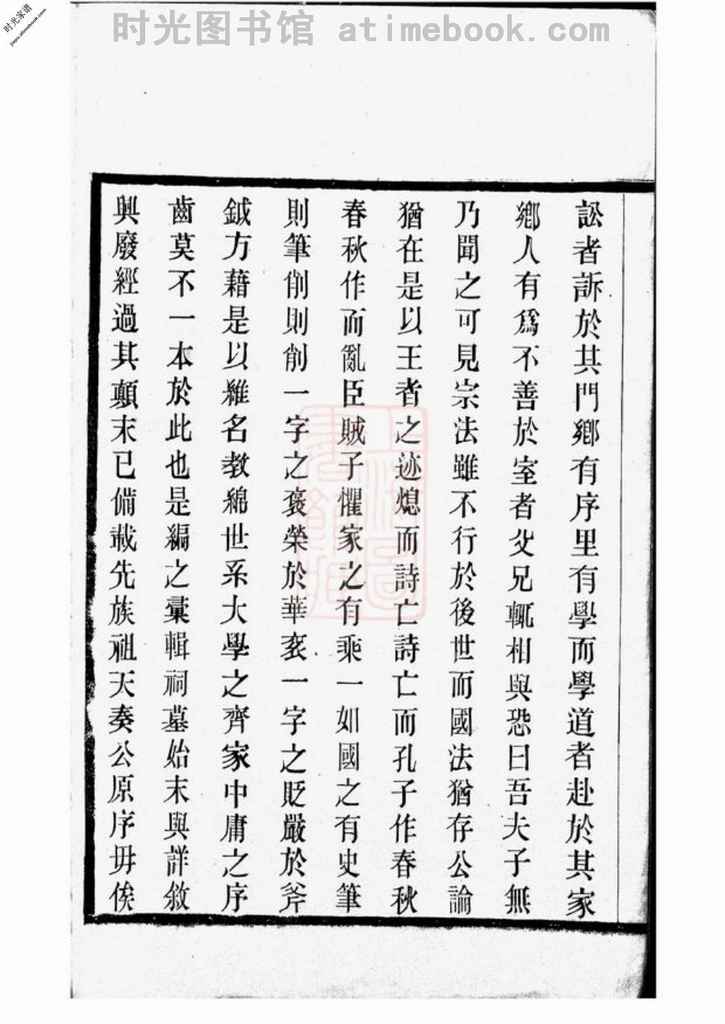 时光图书馆 atimebook.com
时光家谱
訟者訴於其門鄉有序里有學而學道者赴於其家
鄉人有爲不善於室者父兄輒相與恐曰吾夫子無
乃聞之可見宗法雖不行於後世而國法猶存公論
猶在是以王者之迹熄而詩亡詩亡而孔子作春秋
春秋作而亂臣賊子懼家之有乘一如國之有史筆
則筆削則削一字之褒榮於華衮一字之貶嚴於斧
鉞方藉是以維名教綿世系大學之齊家中庸之序
齒莫不一本於此也是編之彙輯祠墓始末與詳敘
興廢經過其顛末已備載先族祖天奏公原序毋俟